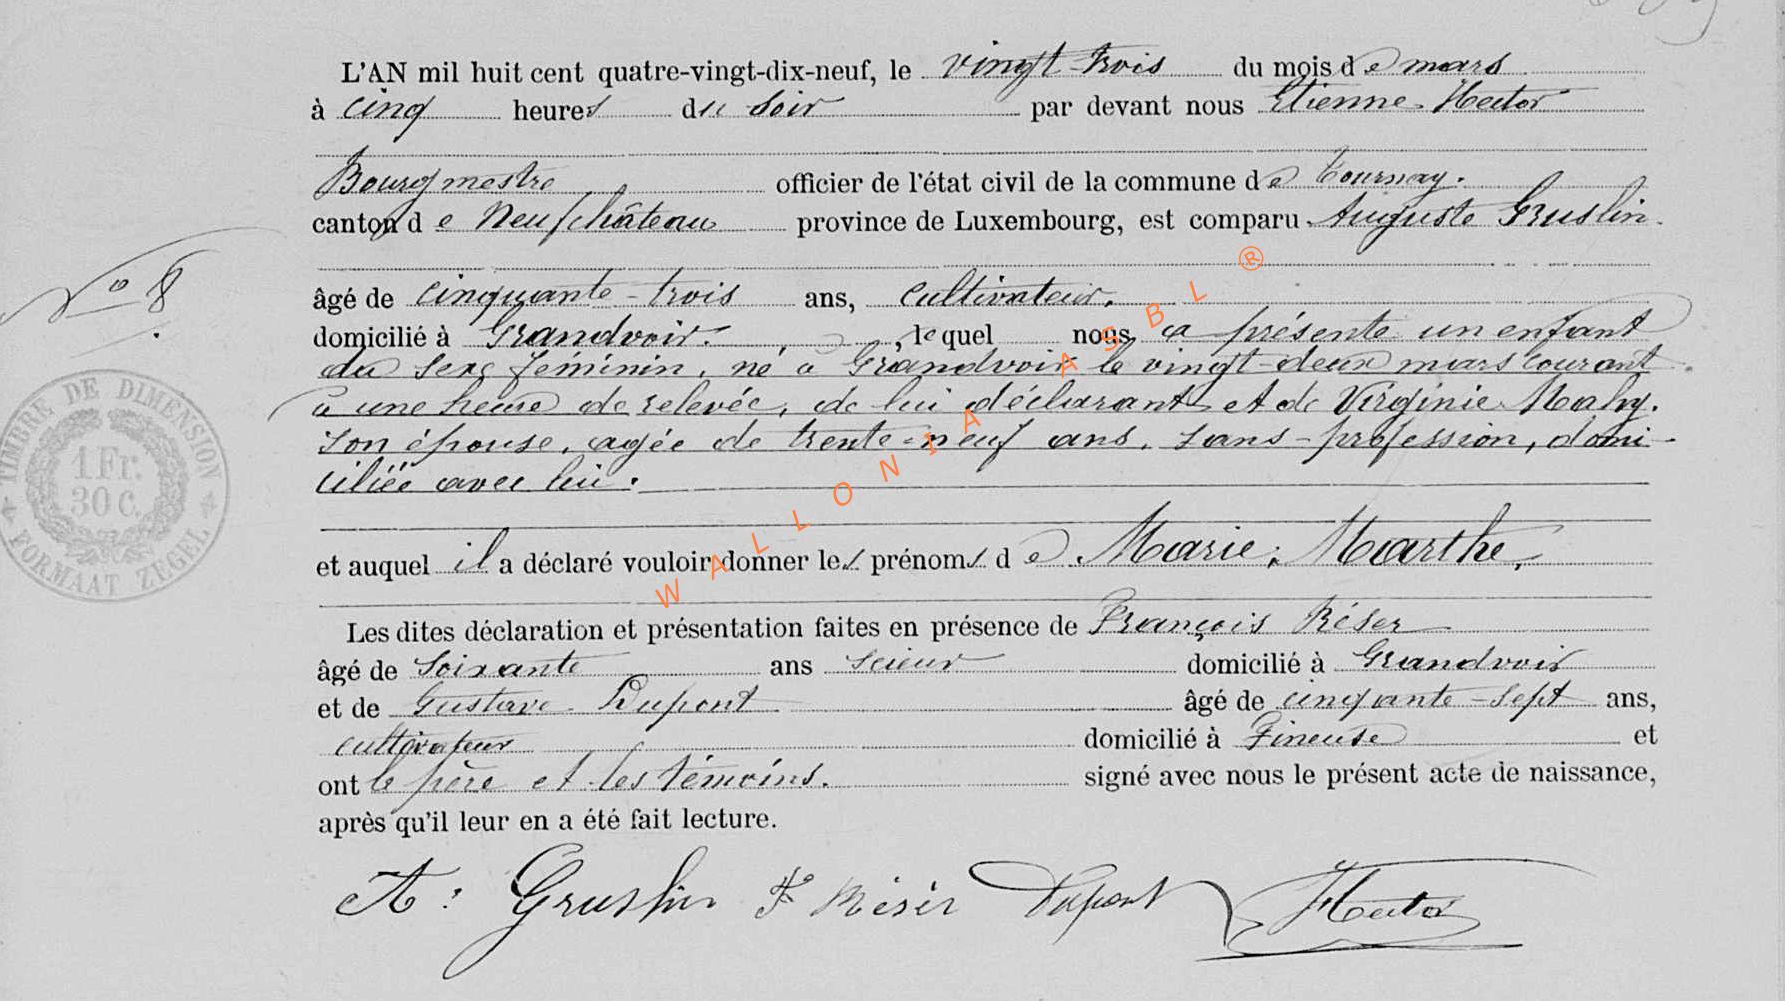 L'AN mil huit cent quatre-vingt-dix-neuf, le vingt-trois du mois de mars
à cinq heures du soir par devant nous Etienne Hector
Bourgmestre officier de l'état civil de la commune de Tournay.
canton de Neufchâteau province de Luxembourg, est comparu Auguste Gruslin
No 8
âgé de cinquante-trois ans, cultivateur.
domicilié à Grandvoir. , lequel nous a présenté un enfant
du sexe féminin, né à Grandvoir le vingt-deux mars courant
à une heure de relevée, de lui déclarant et de Virginie Mahy.
son épouse, agée de trente-neuf ans, sans-profession, domi-
ciliée avec lui.
TIMBRE DE DIMENSION
1 Fr.
30 C.
FORMAAT ZEGEL
et auquel il a déclaré vouloir donner les prénoms de Marie, Marthe,
Les dites déclaration et présentation faites en présence de François Réser
âgé de soixante ans scieur domicilié à Grandvoir
et de Gustave Dupont âgé de cinquante-sept ans,
cultivateur domicilié à Fineuse et
ont le père et les témoins. signé avec nous le présent acte de naissance,
après qu'il leur en a été fait lecture.
A: Gruslin F Réser Dupont Hector
WALLONIA ASBL ®